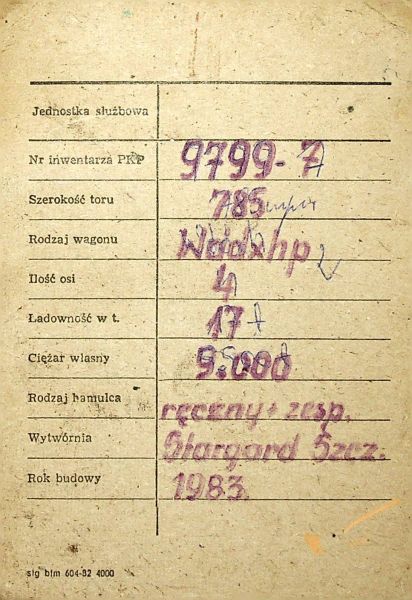 Jednostka służbowa
Nr inwentarza PKP 9799-7
Szerokość toru 785
Rodzaj wagonu Wddxhp
Ilość osi 4
Ładowność w t. 17
Ciężar własny 9.000
Rodzaj hamulca ręczny + zesp.
Wytwórnia Stargard Szcz.
Rok budowy 1983.
stg btm 604-82 4000